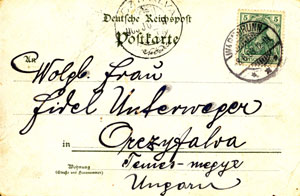 Deutsche Reichspost
Postkarte
An
Wolgb. Frau
Fidel Unterweger
in
Orczyfalva
Temes-megye
Wohnung
(Straße und Hausnummer)
Ungarn
5 5